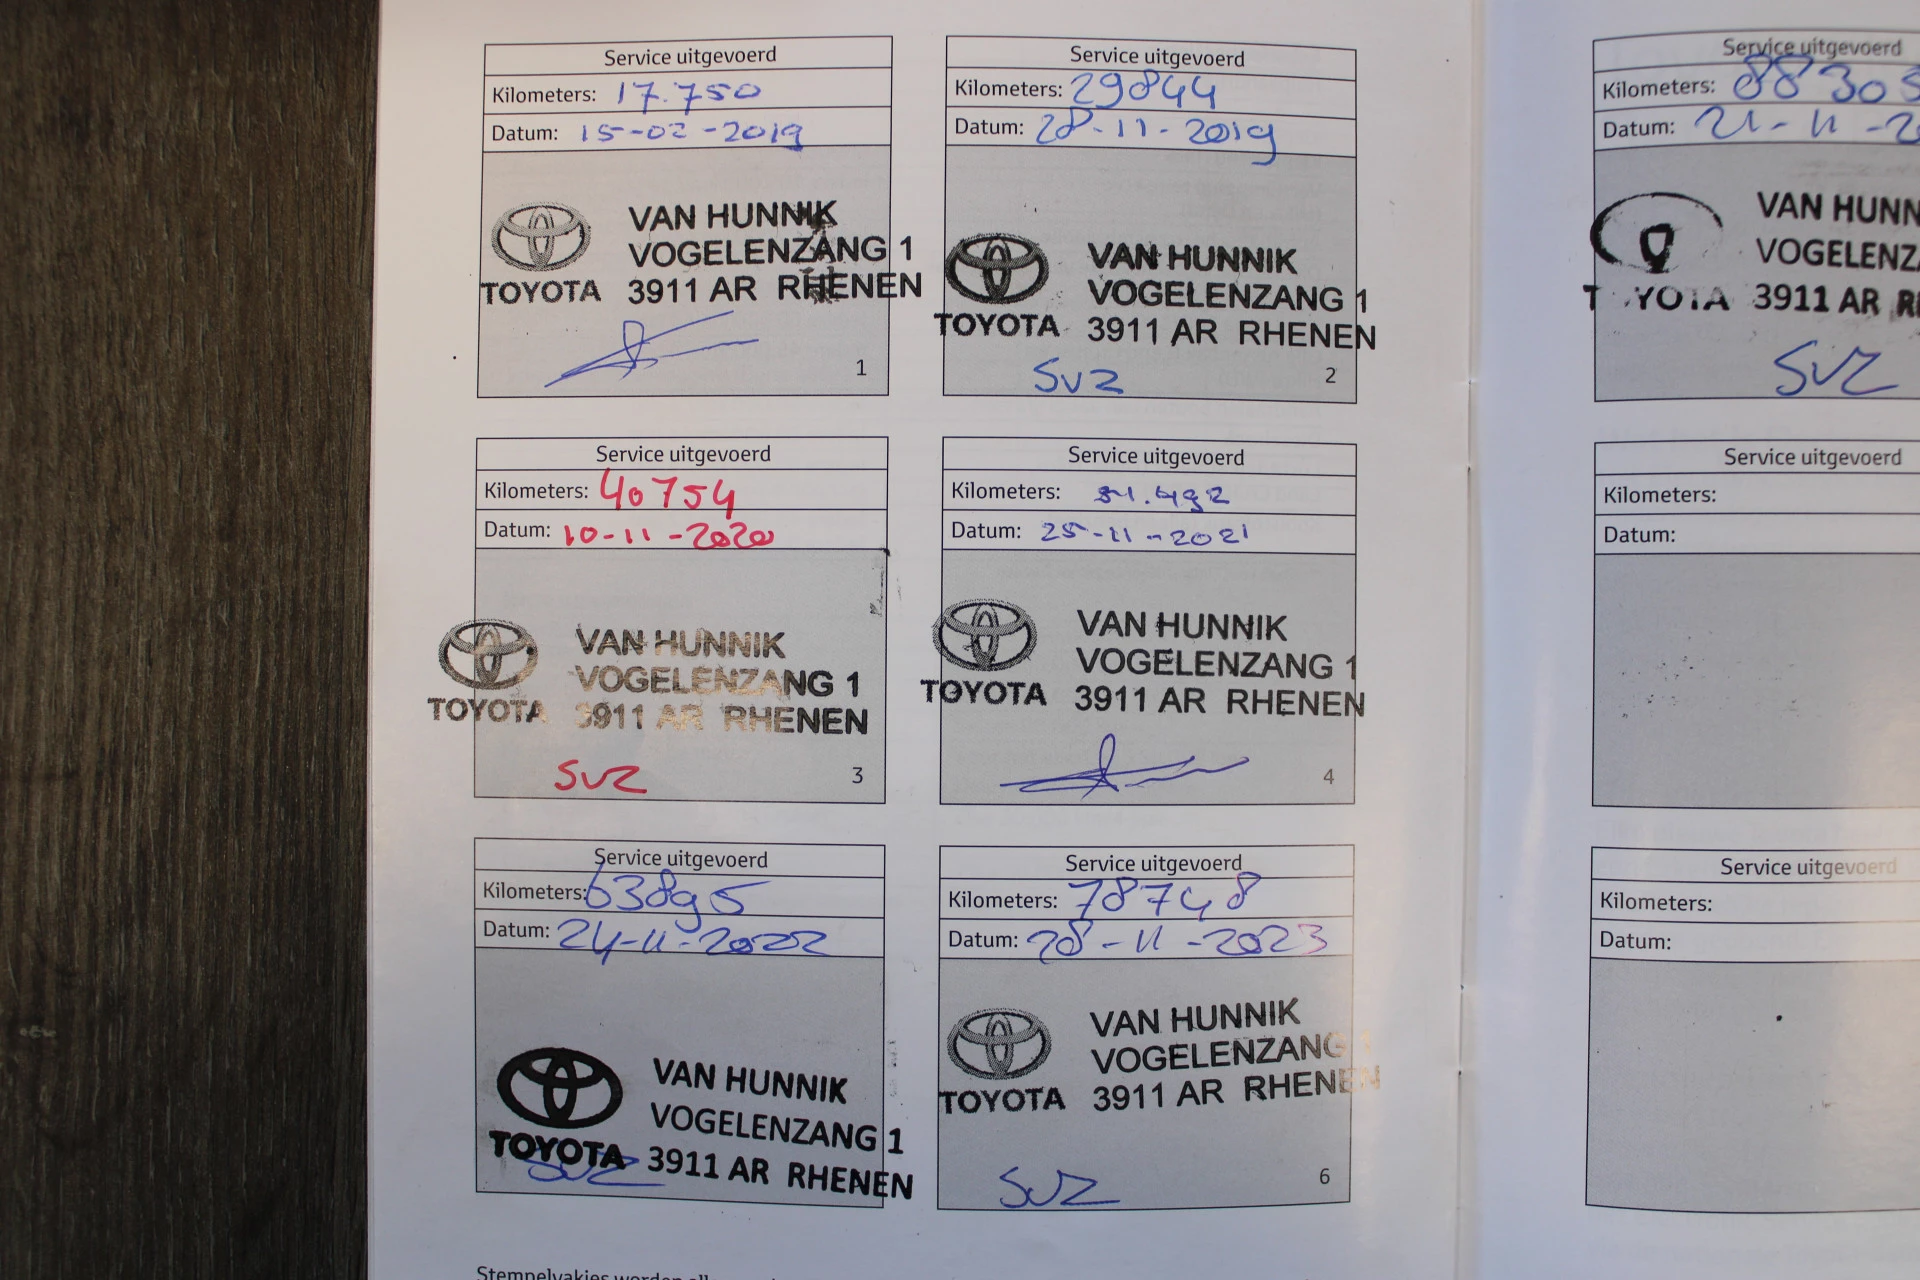 Service uitgevoerd
Kilometers: 17.750
Datum: 15-02-2019
VAN HUNNIK
VOGELENZANG 1
TOYOTA 3911 AR RHENEN
1
Service uitgevoerd
Kilometers: 29844
Datum: 28-11-2019
VAN HUNNIK
VOGELENZANG 1
TOYOTA 3911 AR RHENEN
SVZ
2
Service uitgevoerd
Kilometers: 40754
Datum: 10-11-2020
VAN HUNNIK
VOGELENZANG 1
TOYOTA 3911 AR RHENEN
SVZ
3
Service uitgevoerd
Kilometers: 51.492
Datum: 25-11-2021
VAN HUNNIK
VOGELENZANG 1
TOYOTA 3911 AR RHENEN
4
Service uitgevoerd
Kilometers: 63895
Datum: 24-11-2022
VAN HUNNIK
VOGELENZANG 1
TOYOTA 3911 AR RHENEN
SVZ
Service uitgevoerd
Kilometers: 78748
Datum: 28-11-2023
VAN HUNNIK
VOGELENZANG 1
TOYOTA 3911 AR RHENEN
SVZ
6
Service uitgevoerd
Kilometers: 88303
Datum: 21-11-2
VAN HUNN
VOGELENZA
TOYOTA 3911 AR R
SVZ
Service uitgevoerd
Kilometers:
Datum:
Service uitgevoerd
Kilometers:
Datum: